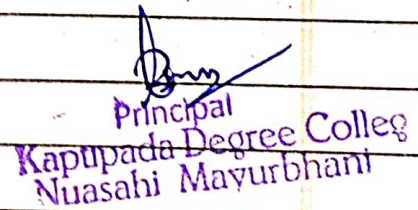 Principal
Kaptipada Degree Colleg
Nuasahi Mayurbhanj